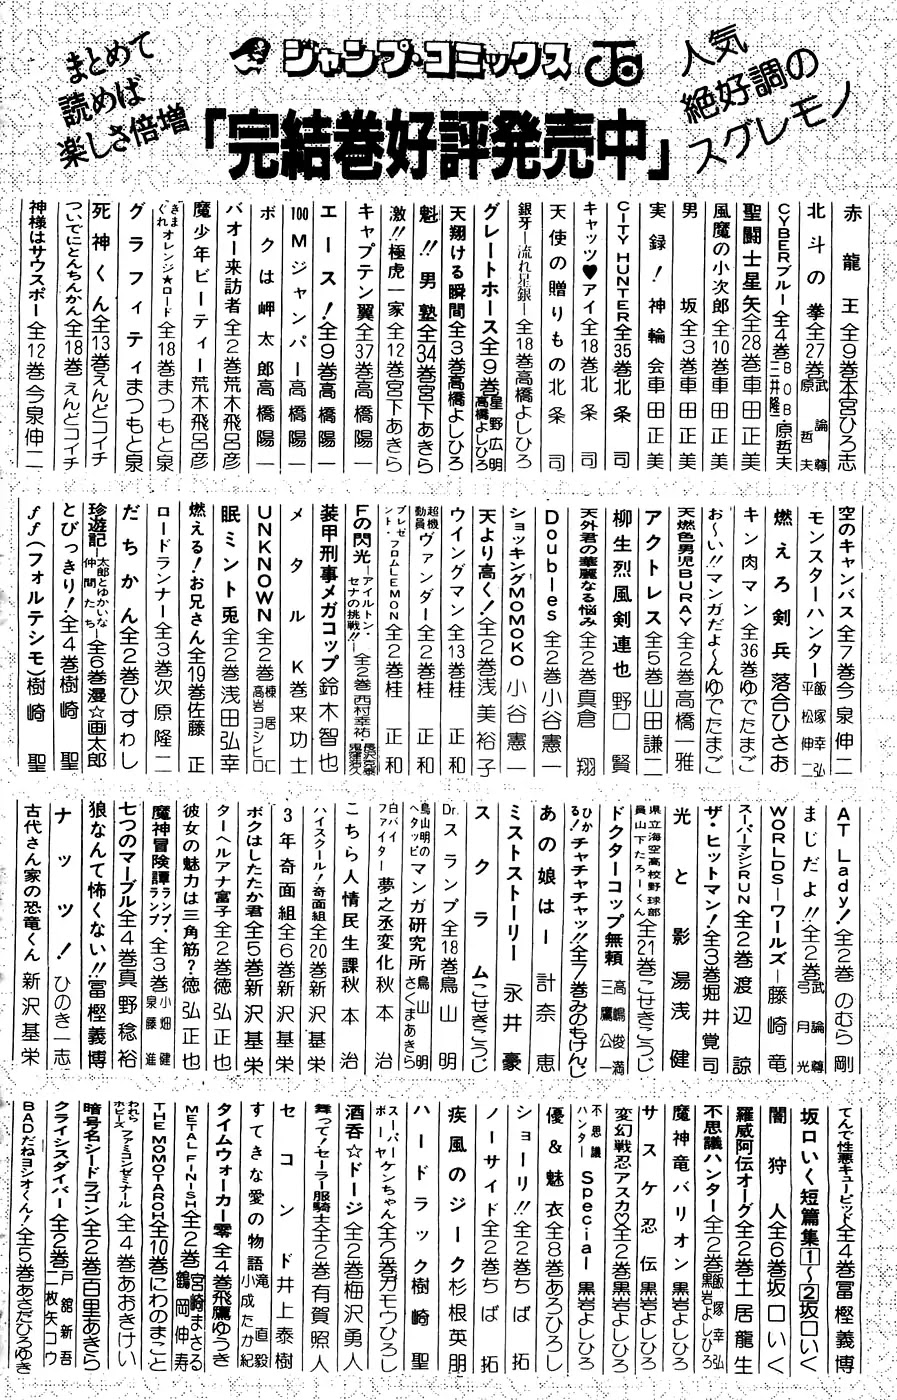 まとめて
読めば
楽しさ倍増
ジャンプ・コミックス
人気
絶好調の
スグレモノ
「完結巻好評発売中」
赤龍王 全9巻 本宮ひろ志
北斗の拳 全27巻 武論尊 原哲夫
CYBERブルー 全4巻 BOB 三井隆一 原哲夫
聖闘士星矢 全28巻 車田正美
風魔の小次郎 全10巻 車田正美
男坂 全3巻 車田正美
実録!神輪会 車田正美
CITY HUNTER 全35巻 北条司
キャッツ♥アイ 全18巻 北条司
天使の贈りもの 北条司
銀牙―流れ星 銀― 全18巻 高橋よしひろ
グレートホース 全9巻 星野広明 高橋よしひろ
天翔ける瞬間 全3巻 高橋よしひろ
魁!!男塾 全34巻 宮下あきら
激!!極虎一家 全12巻 宮下あきら
キャプテン翼 全37巻 高橋陽一
エース! 全9巻 高橋陽一
100Mジャンパー 高橋陽一
ボクは岬太郎 高橋陽一
バオー来訪者 全2巻 荒木飛呂彦
魔少年ビーティー 荒木飛呂彦
きまぐれオレンジ★ロード 全18巻 まつもと泉
グラフィティ まつもと泉
死神くん 全13巻 えんどコイチ
ついでにとんちんかん 全18巻 えんどコイチ
神様はサウスポー 全12巻 今泉伸二
空のキャンバス 全7巻 今泉伸二
モンスターハンター 飯塚幸弘 平松伸二
燃えろ剣兵 落合ひさお
キン肉マン 全36巻 ゆでたまご
お〜い!!マンガだよ〜ん ゆでたまご
天燃色男児BURAY 全2巻 高橋一雅
アクトレス 全5巻 山田謙二
柳生烈風剣連也 野口賢
天外君の華麗なる悩み 全2巻 真倉翔
Doubles 全2巻 小谷憲一
ショッキングMOMOKO 小谷憲一
天より高く! 全2巻 浅美裕子
ウイングマン 全13巻 桂正和
超機動員ヴァンダー 全2巻 桂正和
プレゼント・フロムLEMON 全2巻 桂正和
Fの閃光―アイルトン・セナの挑戦!!― 全2巻 西村幸祐
装甲刑事メガコップ 鈴木智也
メタルK 巻来功士
UNKNOWN 全2巻 棟居仁 高岩ヨシヒロ
眠ミント兎 全2巻 浅田弘幸
燃える!お兄さん 全19巻 佐藤正
ロードランナー 全3巻 次原隆二
だちかん 全2巻 ひすわし
珍遊記―太郎とゆかいな仲間たち― 全6巻 漫☆画太郎
とびっきり! 全4巻 樹崎聖
ff(フォルテシモ) 樹崎聖
AT Lady! 全2巻 のむら剛
まじだよ!! 全2巻 武論尊 弓月光
WORLDS―ワールズ― 藤崎竜
スーパーマシンRUN 全2巻 渡辺諒
ザ・ヒットマン! 全3巻 堀井覚司
光と影 湯浅健
県立海空高校野球部員山下たろーくん 全21巻 こせきこうじ
ドクターコップ無頼 高嶋俊満 三鷹公一
ひかる!チャチャチャッ!! 全7巻 みのもけんじ
あの娘は― 計奈恵
ミストストーリー 永井豪
スクラム こせきこうじ
Dr.スランプ 全18巻 鳥山明
鳥山明のヘタッピマンガ研究所 鳥山明 さくまあきら
白バイファイター夢之丞変化 秋本治
こちら人情民生課 秋本治
ハイスクール!奇面組 全20巻 新沢基栄
3年奇面組 全6巻 新沢基栄
ボクはしたたか君 全5巻 新沢基栄
ターヘルアナ富子 全2巻 徳弘正也
彼女の魅力は三角筋? 徳弘正也
魔神冒険譚ランプ・ランプ 全3巻 小畑健 泉藤進
七つのマーブル 全4巻 真野稔裕
狼なんて怖くない!! 冨樫義博
ナッツ! ひのき一志
古代さん家の恐竜くん 新沢基栄
てんで性悪キューピッド 全4巻 冨樫義博
坂口いく短篇集1〜2 坂口いく
闇狩人 全6巻 坂口いく
羅威阿伝オーグ 全2巻 土居龍生
不思議ハンター 全2巻 飯塚幸弘 黒岩よしひろ
魔神竜バリオン 黒岩よしひろ
サスケ忍伝 黒岩よしひろ
変幻戦忍アスカ♡ 全2巻 黒岩よしひろ
不思議ハンターSpecial 黒岩よしひろ
優&魅衣 全8巻 あろひろし
ショーリ!! 全2巻 ちば拓
ノーサイド 全2巻 ちば拓
疾風のジーク 杉根英朋
ハードラック 樹崎聖
スーパーボーヤケンちゃん 全2巻 ガモウひろし
酒呑☆ドージ 全2巻 梅沢勇人
舞って!セーラー服騎士 全2巻 有賀照人
セコンド 井上泰樹
すてきな愛の物語 滝直毅 小成たか紀
タイムウォーカー零 全4巻 飛鷹ゆうき
METAL FINISH 全2巻 宮崎まさる 鶴岡伸寿
THE MOMOTAROH 全10巻 にわのまこと
われらホビーズファミコンゼミナール 全4巻 あおきけい
暗号名シードラゴン 全2巻 百里あきら
クライシスダイバー 全2巻 戸舘新吾 二枚矢コウ
BADだねヨシオくん! 全5巻 あさだひろゆき